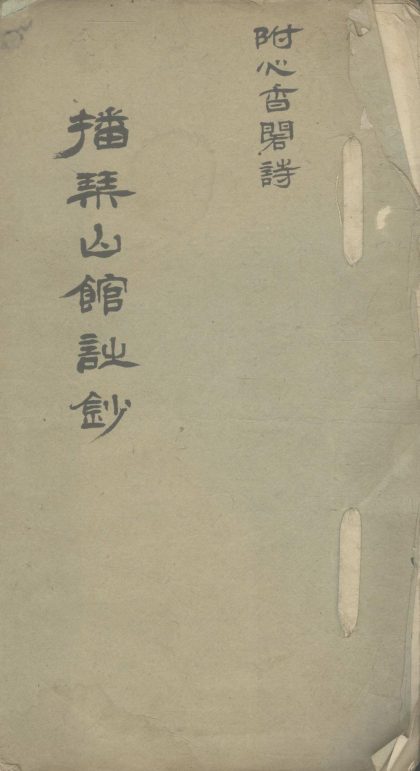 附心香閣詩
播琹山館詩鈔